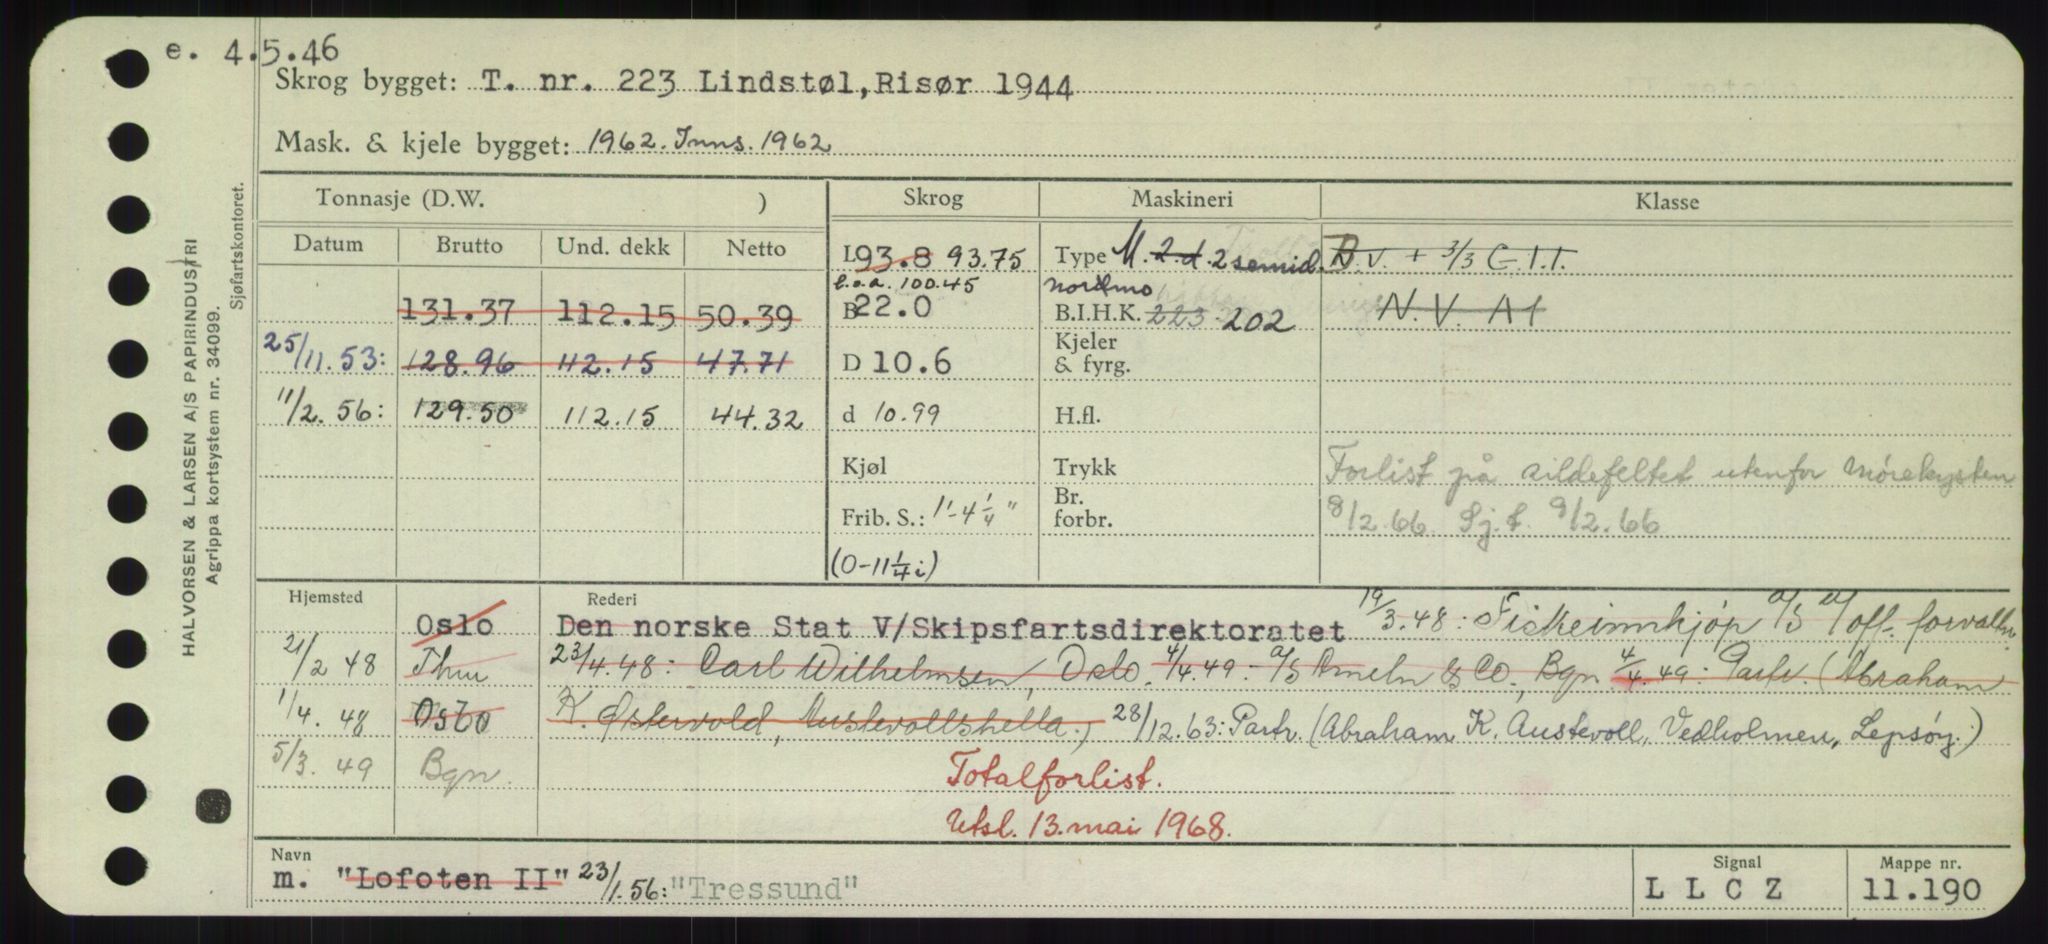 e. 4.5.46
Skrog bygget: T. nr. 223 Lindstøl, Risør 1944
Mask. & kjele bygget: 1962. Inns. 1962
HALVORSEN & LARSEN A/S PAPIRINDUSTRI
Agrippa kortsystem nr. 34099.
Sjøfartskontoret.
Tonnasje (D.W. ) Skrog Maskineri Klasse
Datum Brutto Und. dekk Netto
L 93.8 93.75 Type M. 2.d. 2 semid. D.V. + 3/3 G.I.I.
l.o.a. 100.45 nordmo
131.37 112.15 50.39 B 22.0 B.I.H.K. 223 202 N.V. A1
25/11.53: 128.96 112.15 47.71 D 10.6 Kjeler & fyrg.
11/2.56: 129.50 112.15 44.32 d 10.99 H.fl.
Kjøl Trykk Forlist på sildefeltet utenfor Mørekysten
Frib. S.: 1'-4 1/4" Br. forbr. 8/2.66. Sj.f. 9/2.66
(0-11 1/4 i)
Hjemsted Rederi
Oslo Den norske Stat V/Skipsfartsdirektoratet 19/3.48: Fiskeinnkjøp A/S u/off. forvaltn.
21/2 48 Thm 23/4.48: Carl Wilhelmsen, Oslo. 4/4.49- A/S Ameln & Co., Bgn. 4/4.49: Partr. (Abraham
1/4. 48 Oslo K. Østervold, Austevollshella.) 28/12.63: Partr. (Abraham K. Austevoll, Vedholmen, Lepsøy.)
5/3. 49 Bgn. Totalforlist.
Utsl. 13. mai 1968.
Navn Signal Mappe nr.
m. "Lofoten II" 23/1.56: "Tressund" L L C Z 11.190